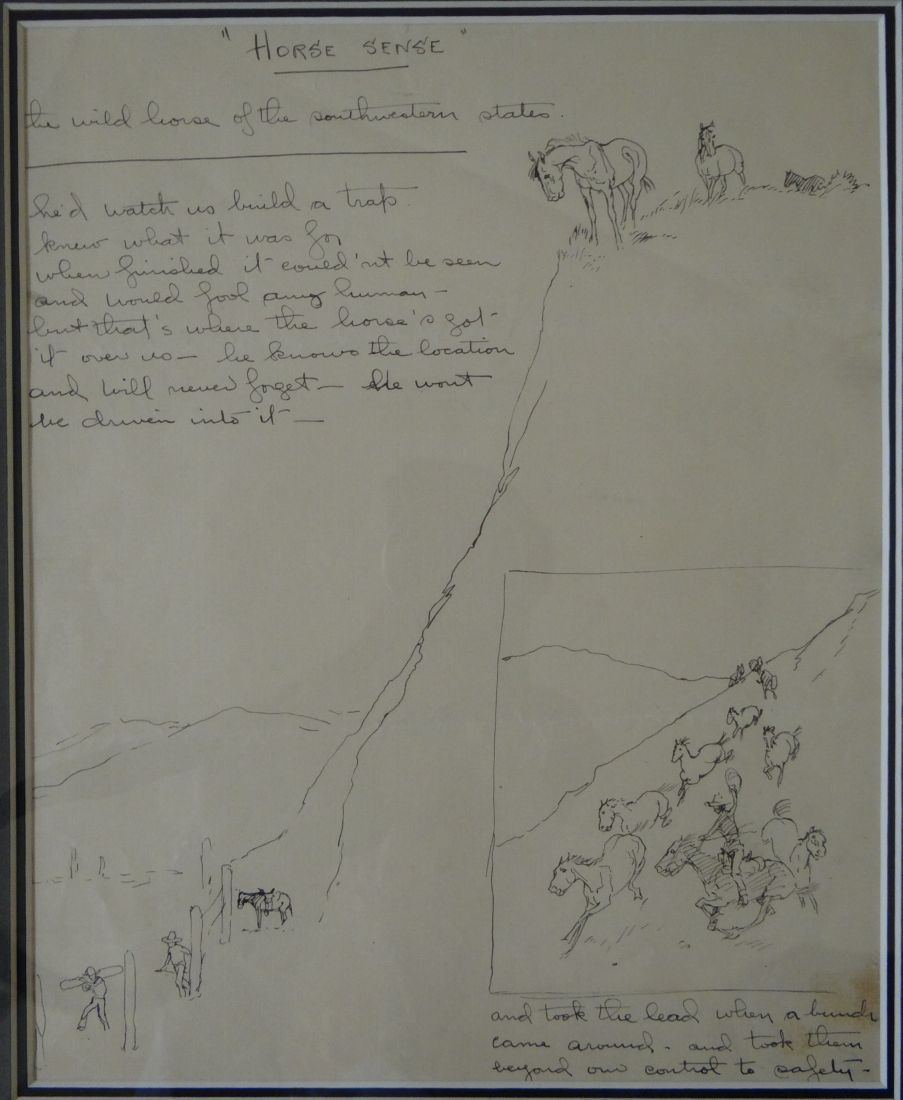 "HORSE SENSE"
the wild horse of the southwestern states.
he'd watch us build a trap.
knew what it was for
when finished it could'nt be seen
and would fool any human –
but that's where the horse's got
it over us – he knows the location
and will never forget – He wont
be driven into it –
and took the lead when a bunch
came around - and took them
beyond our control to safety -